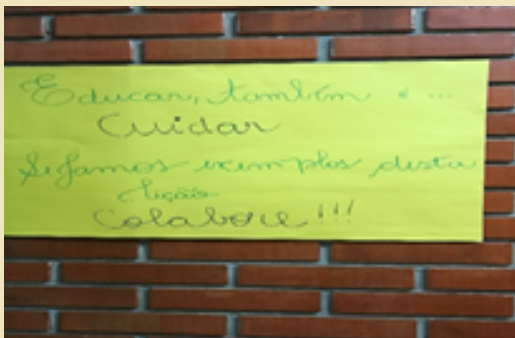 Educar, também é ...
Cuidar
Sejamos exemplos desta
lição
Colabore!!!